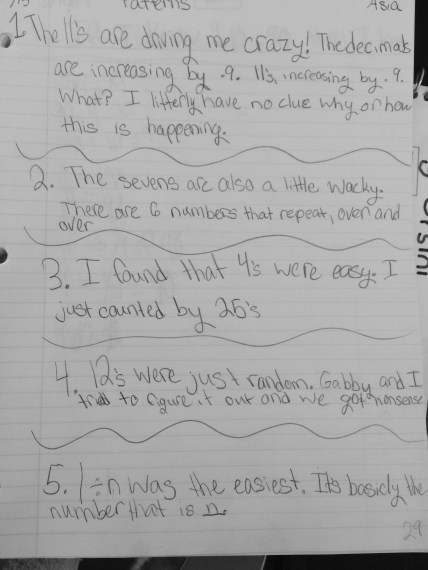 Paterns
Asia
1. The 11's are driving me crazy! The decimals
are increasing by .9. 11's, increasing by .9.
What? I litterly have no clue why or how
this is happening.
2. The sevens are also a little wacky.
There are 6 numbers that repeat, over and
over
3. I found that 4's were easy. I
just counted by 25's
4. 12's were just random. Gabby and I
tried to figure it out and we got nonsense
5. 1÷n was the easiest. It's basicly the
number that is n.
29
Orsini